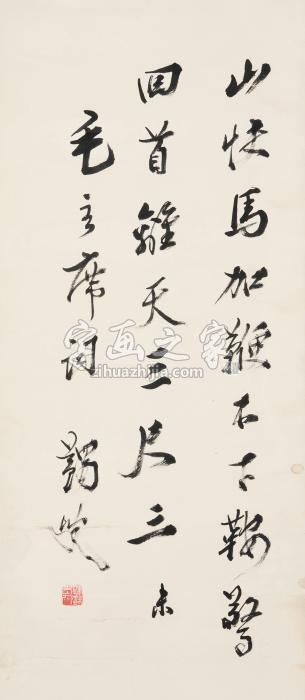 山快馬加鞭不下鞍驚
回首離天三尺三 未
毛主席詞
字画之家
zihuazhijia.com